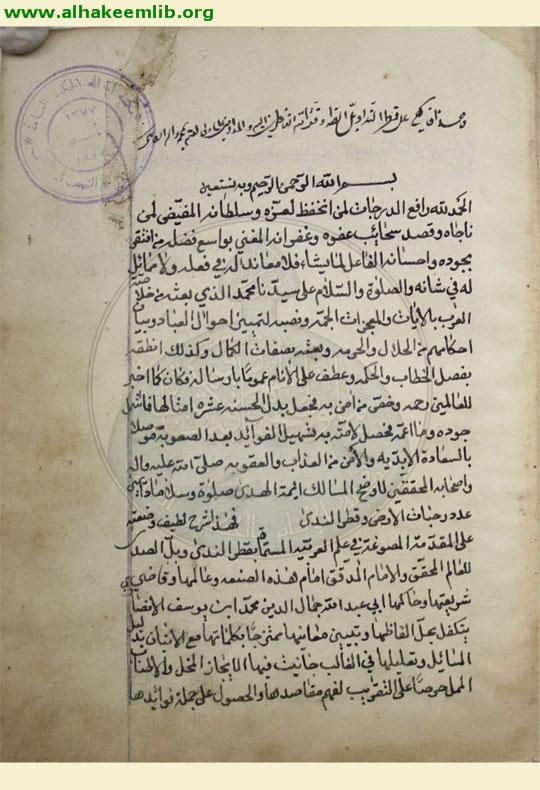 www.alhakeemlib.org
بسم الله الرحمن الرحيم وبه نستعين
الحمد لله رافع الدرجات لمن انخفض لعزه وسلطانه المفيض لمن
ناجاه وقصد سحائب عفوه وغفرانه المغني بواسع فضله من افتقر
بجوده واحسانه الفاعل لما يشاء فلا معاند له في فعله ولا مماثل
له في شانه والصلوة والسلام على سيدنا محمد الذي بعثه من خلاصة
العرب بالايات والمعجزات الجمه ونصبه لتمييز احوال العباد وبيان
احكامهم من الحلال والحرمه وبعثه بصفات الكمال وكذلك انطقه
بفصل الخطاب والحكمه وعطف على الانام عموما بارساله فكان كما اخبر
للعالمين رحمه وخص من امن به فجعل بدل الحسنه عشره امثالها
جوده وما اعمه فحصل لامته به تسهيل الفوائد بعد الصعوبه
بالسعادة الابديه والامن من العذاب والعقوبه صلى الله عليه واله
واصحابه المحققين لاوضح المسالك ائمة الهدى صلوة وسلاما
عدد رحبات الارض وقطر الندى فهذا شرح لطيف وضعته
على المقدمة المصوغة في علم العربيه المسماة بقطر الندى وبل الصدى
للعالم المحقق والامام المدقق امام هذه الصنعه وعالمها وقاضي
شريعتها وحاكمها ابي عبد الله جمال الدين محمد ابن يوسف الانصاري
يتكفل بحل الفاظها وتبيين معانيها ممزجا بكلماتها مع الاتيان بدليل
المسائل وتعليلها في الغالب جانبت فيها الايجاز المخل والاطناب
الممل حرصا على التقريب لفهم مقاصدها والحصول على جملة فوائدها